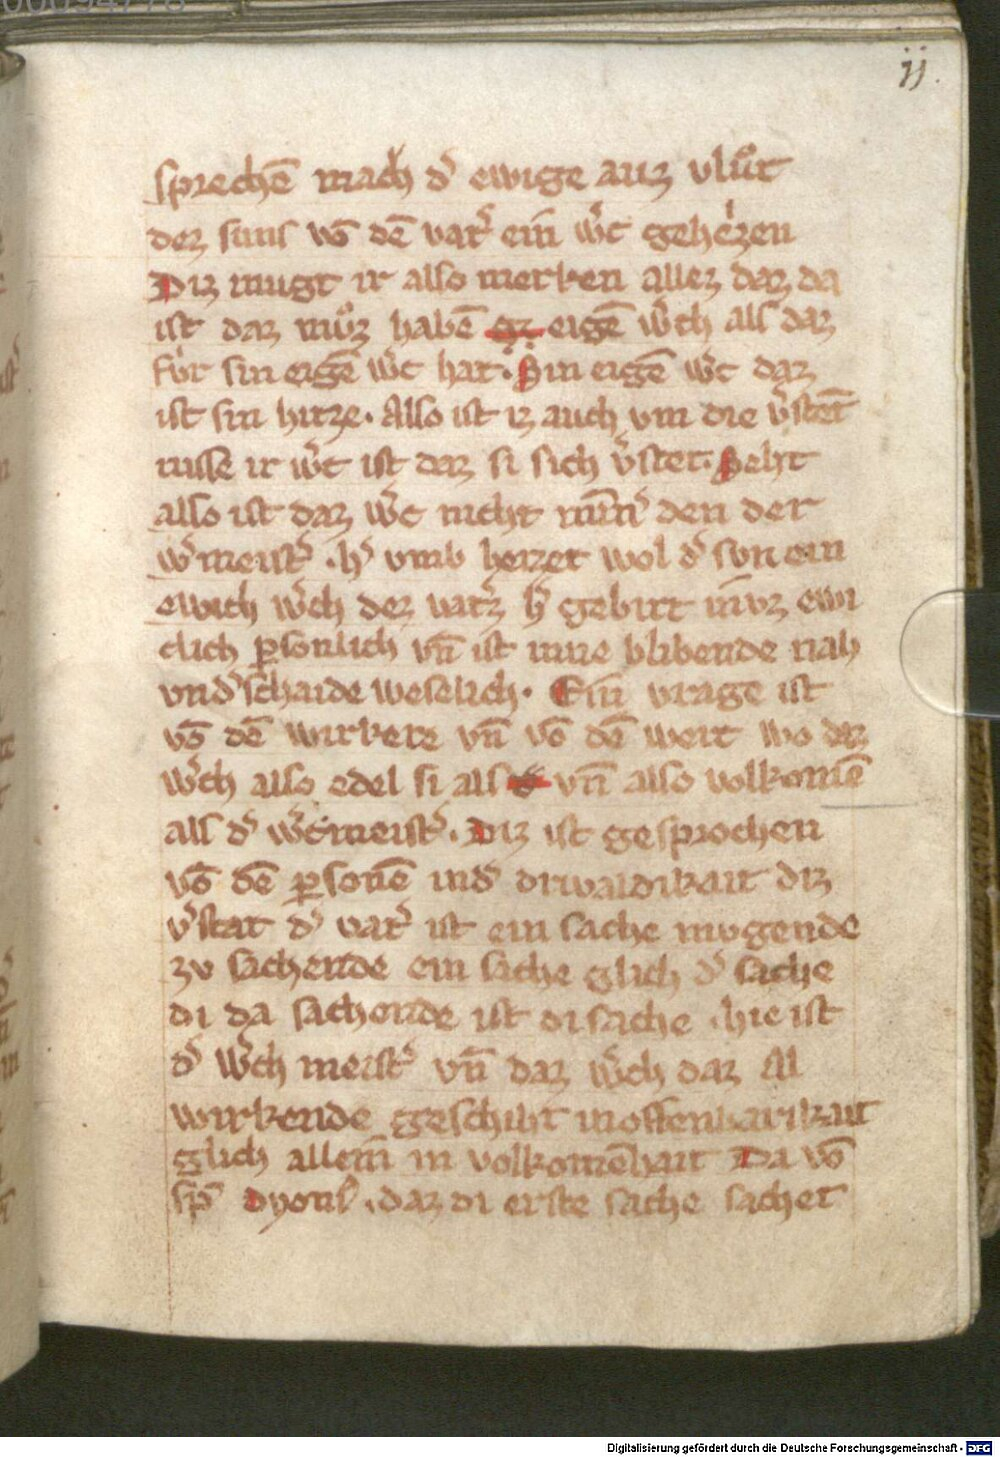 00094778
jj.
sprechē mach d᾽ ewige auz vlůt
dez suns vō dē vat᾽ ein w᾽c geheizen
Diz mugt ir also merken allez daz da
ist daz můz habē eigē w᾽ch als daz
fůr sin eigē w᾽c hat. Sin eigē w᾽c daz
ist sin hitze. Also ist iz auch vm die v᾽stēt
nisse ir w᾽c ist daz si sich v᾽stet. Seht
also ist daz w᾽c nicht minn᾽ den der
w᾽meist᾽. h᾽ vmb heizet wol d᾽ svn ein
ewich w᾽ch dez vat᾽z h᾽ gebirt in vz ewi
clich p̲sonlich vn̄ ist inne blibende nah
vnd᾽schaide weselich. Ein vrage ist
vō dē wirkere vn̄ vō dē wert wo daz
w᾽ch also edel si als vn̄ also volkomē
als d᾽ w᾽cmeist᾽. Diz ist gesprochen
vō dē p̲sonē in d᾽ drivaldikait diz
v᾽stat d᾽ vat᾽ ist ein sache mugende
zv sachende ein sache glich d᾽ sache
di da sachende ist di sache. hie ist
d᾽ w᾽ch meist᾽ vn̄ daz w᾽ch daz Al
wirkende geschiht in offenbarikait
glich allein in volkomēhait Da vō
sp̄ᵉ dyonis᾽. daz di erste sache sachet
Digitalisierung gefördert durch die Deutsche Forschungsgemeinschaft - DFG